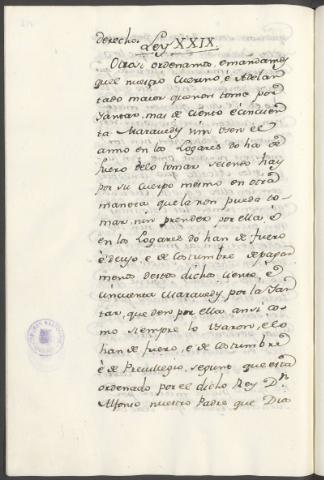 derecho.
Ley XXIX.
Otrosi ordenamos, e mandamos
quel nuestro Merino, è Adelan
tado maior que non tome por
Yantar, mas de ciento è cincuen
ta Maravedis nin vsen el
año en los Logares do ha de
fuero de lo tomar seiendo hay
por su cuerpo mesmo en otra
manera que la non pueda to-
mar, nin prender por ella è
en los Logares do han de fuero
è de uso, e de costumbre de pagar
menos destos dichos ciento, è
cincuenta Maravedis, por la Yan
tar, que den por ella ansi co-
mo siempre lo vsaron, e lo
han de fuero, e de costumbre
è de Previllegio, segund que está
ordenado por el dicho Rey Dn
Alfonso nuestro Padre que Dios